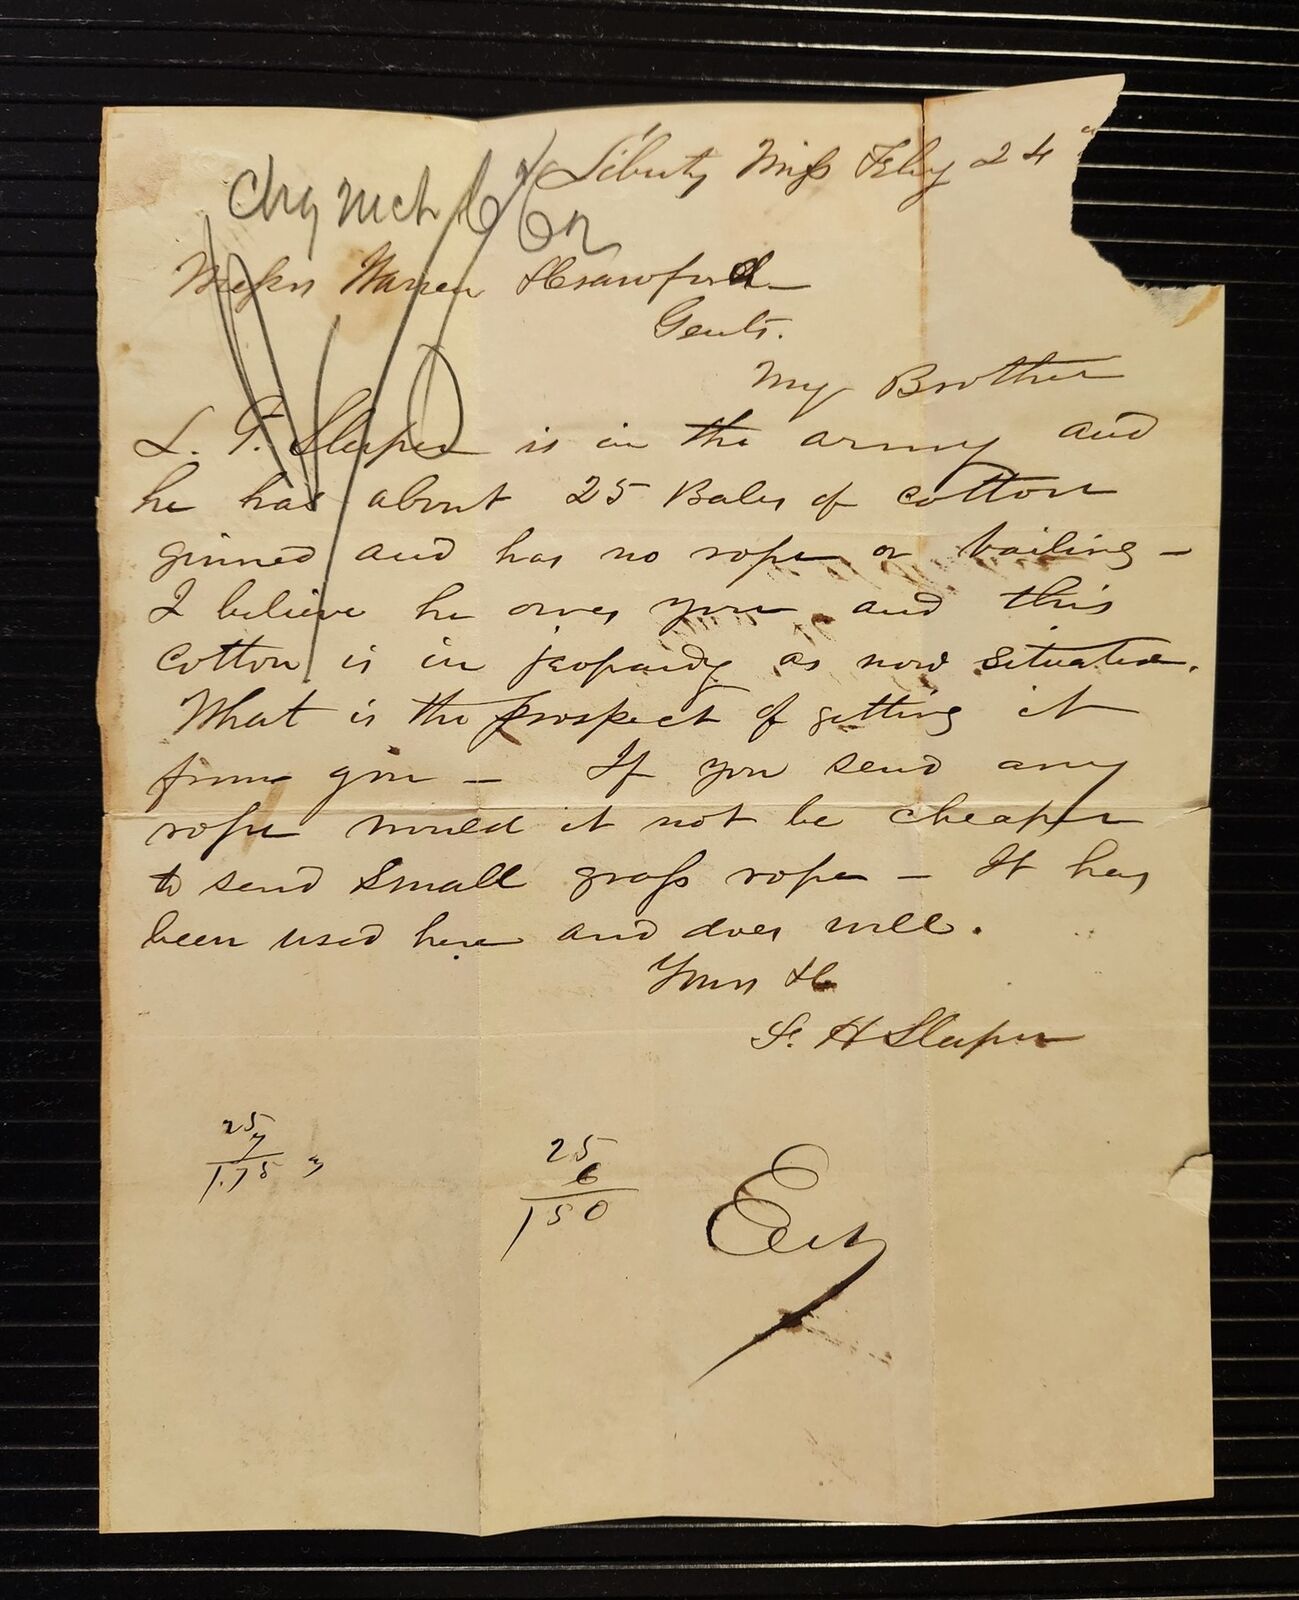 Liberty Miss Feby 24"
Chg Mch 6
Messrs Warren & Crawford
Gents.
My Brother
L. T. Sleeper is in the army and
he has about 25 Bales of cotton
ginned and has no rope or bailing –
I believe he owes you and this
cotton is in jeopardy as now situated.
What is the prospect of getting it
from gin – If you send any
rope would it not be cheaper
to send small grass rope – It has
been used here and does well.
Yours &c
F. H Sleeper
25
7
1.75
25
6
150